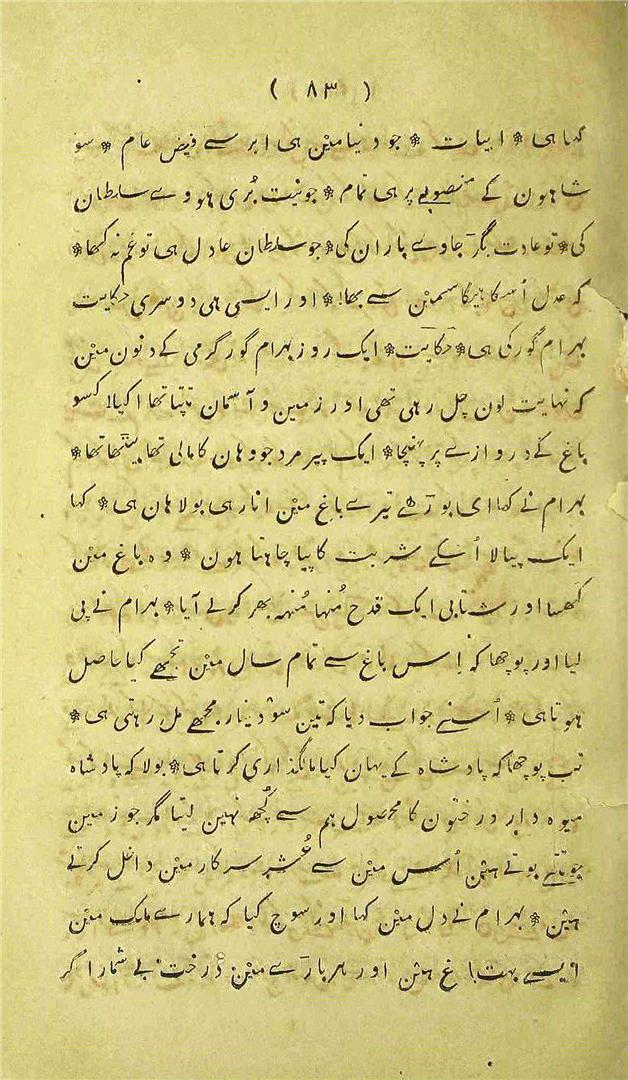 ( ۸۳ )
کہا ہی * ابیات * جو دنیا مین ہی ابر سے فیض عام * سو
شاہون کے منصوبے پر ہی تمام * جو نیت بُری ہووے سلطان
کی * تو عادت بگڑ جاوے باران کی * جو سلطان عادل ہی تو غم نہ کھا *
کہ عدل اُسکا ہیگا سمین سے بھا! * اور ایسی ہی دوسری حکایت
بہرام گور کی ہی * حکایت * ایک روز بہرام گور گرمی کے دنون مین
کہ نہایت لون چل رہی تھی اور زمین و آسمان تپتا تھا اکیلا کسو
باغ کے دروازے پر پہنچا * ایک پیر مرد جو وہان کا مالی تھا بیٹھا تھا *
بہرام نے کہا ای بوڑھے تیرے باغ مین انار ہی بولا ہان ہی * کہا
ایک پیالا اُسکے شربت کا پیا چاہتا ہون * وہ باغ مین
گھسا اور شتابی ایک قدح مُنہا مُنہہ بھر کر لے آیا * بہرام نے پی
لیا اور پوچھا کہ اِس باغ سے تمام سال مین تجھے کیا حاصل
ہوتا ہی * اُسنے جواب دیا کہ تین سو دینار مجھے مل رہتی ہی *
تب پوچھا کہ پادشاہ کے یہان کیا مالگذاری کرتا ہی * بولا کہ پادشاہ
میوہ دار درختون کا محصول ہم سے کُچھ نہین لیتا مگر جو زمین
جوتتے بوتے ہین اُس مین سے عُشر سرکار مین داخل کرتے
ہین * بہرام نے دل مین کہا اور سوچ کیا کہ ہمارے ملک مین
ایسے بہت باغ ہین اور ہر باڑے مین درخت بے شمار اگر